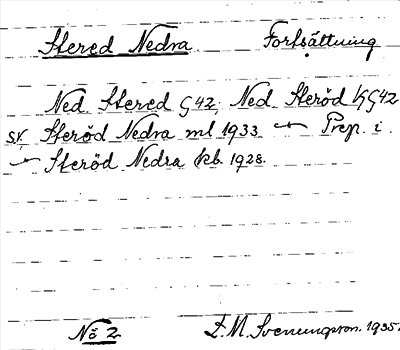 Stered Nedra Fortsättning
Ned. Stered G42; Ned. Steröd GG42
sv. Steröd Nedra ml 1933 — Prep. i.
— Steröd Nedra kb. 1928.
Nö 2 D.M. Svenningson. 1935.